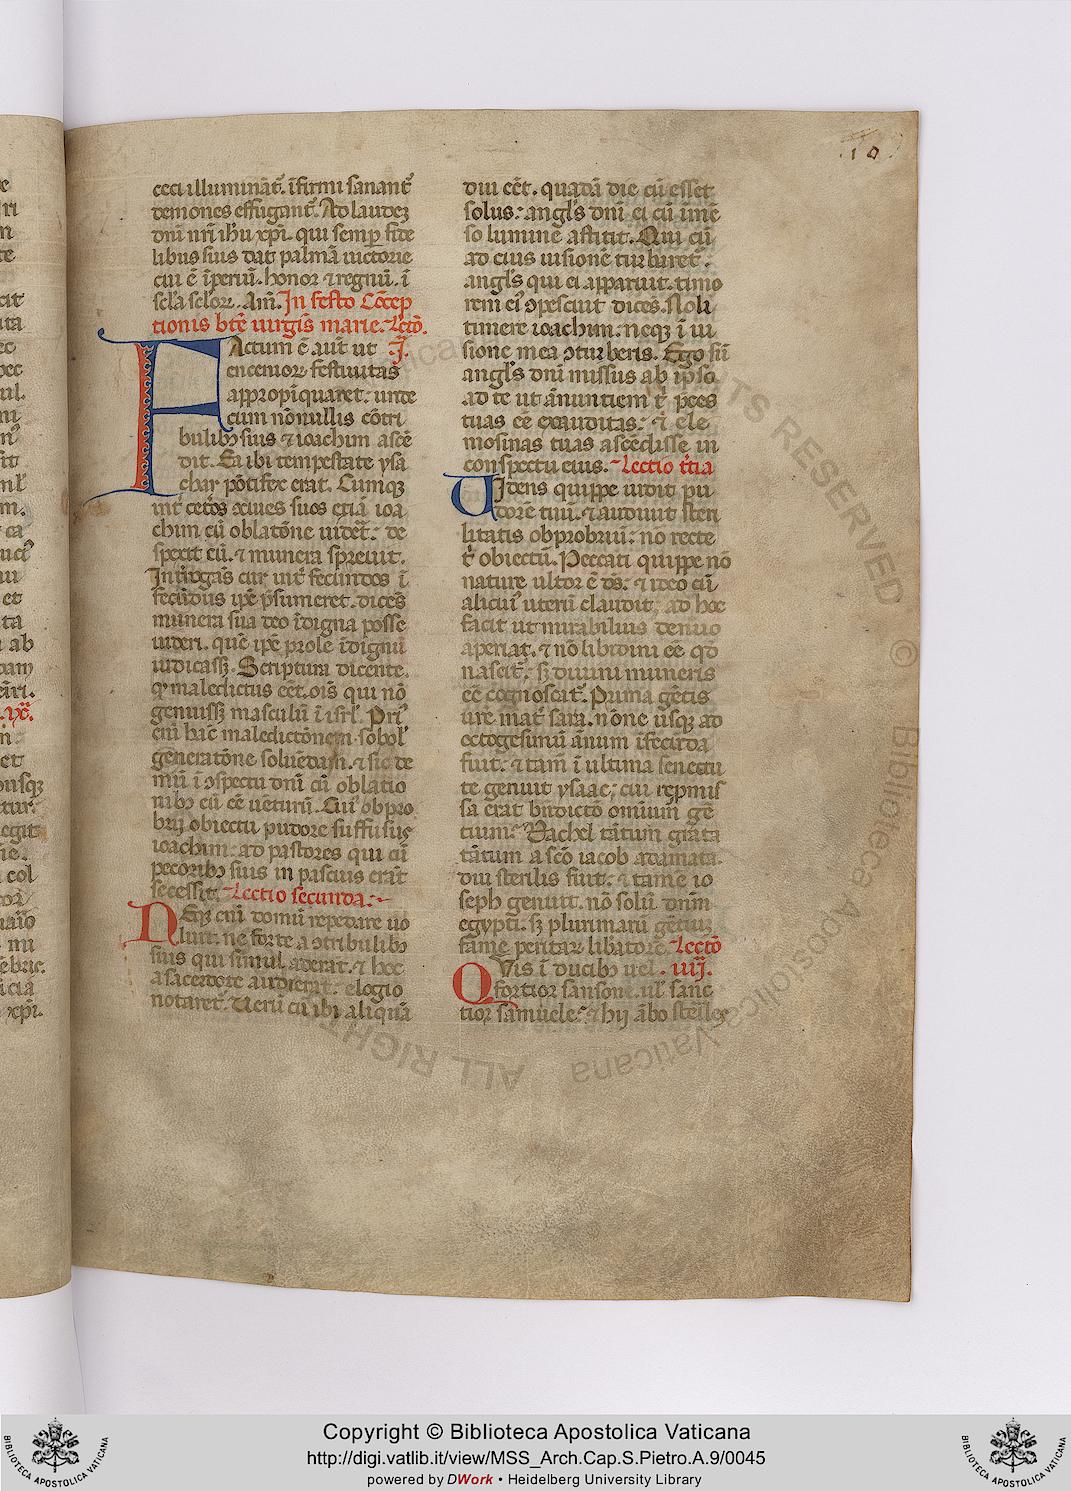 10
ceci illumināt᷑. īfirmi sanant᷑
demones effugant᷑. Ad laudeʒ
dnī nr̄i ihu xp̄i. qui semp̲ fide
libus suis dat palmā uictorie
cui ē īperiū. honor ⁊ regnū. ī
scl̄a sclōꝝ. Am̄. In festo Cōcep
tionis btē uirgīs marie. Lctō.
Actum ē aūt ut .j.
enceniorꝝ festiuitas
appropīquaret: unde
cum nōnullis cōtri
bulibꝫ suis ⁊ ioachim ascē
dit. Ea ibi tempestate ysa
char pōtifex erat. Cumqꝫ
int̄ cet̄os ciues suos etiā ioa
chim cū oblatōne uidēt: de
spexit eū. ⁊ munera spreuit.
Int̄rogās cur int̄ fecundos ī
fecūdus ip̄e p̄sumeret. dicēs
munera sua deo īdigna posse
uideri. quē ip̄e prole īdignū
iudicass̄. Scriptura dicente.
qꝫ maledictus eēt. oīs qui nō
genuiss̄ masculū ī isrl̄. Pri᷒
enī hac maledictōnem sobol᷑
generatōne soluēdam. ⁊ sic de
mū ī ꝯspectu dnī cū oblatio
nibꝫ eū eē uēturū. Cui᷒ obpro
brij obiectu pudore suffusus
ioachim: ad pastores qui cū
pecoribꝫ suis in pascuis erāt
secessit. Lectio secunda:
Neqꝫ enī domū repedare uo
luit. ne forte a ꝯtribulibꝫ
suis qui simul aderāt. ⁊ hoc
a sacerdote audierāt: elogio
notaret᷑. Uerū cū ibi aliquā
diu eēt. quadā die cū esset
solus: angl̄s dnī ei cū īmē
so lumine astitit. Qui cū
ad eius uisionē turbaret᷑.
angl̄s qui ei apparuit. timo
rem ei᷒ ꝯpescuit dicēs. Noli
timere ioachim: neqꝫ ī ui
sione mea ꝯturberis. Ego sū
angl̄s dnī missus ab ip̄so
ad te ut ānuntiem t᷑ p̄ces
tuas eē exauditas: ⁊ ele
mosinas tuas ascēdisse in
conspectu eius. Lectio t᷑tia
Uidens quippe uidit pu
dorē tuū. ⁊ audiuit steri
litatis obprobriū: nō recte
t᷑ obiectū. Peccati quippe nō
nature ultor ē d̄s. ⁊ ideo cū
alicui᷒ uterū claudit: ad hoc
facit ut mirabilius denuo
aperiat. ⁊ nō libidini eē qd̄
nascit᷑. sꝫ diuini muneris
eē cognoscat᷑. Prima gētis
ure mat᷑ sara. nōne usqꝫ ad
octogesimū ānum īfecūda
fuit: ⁊ tamē ī ultima senectu
te genuit ysaac; cui repmis
sa erat bn̄dictō omniū gē
tium: Rachel tātum grāta
tātum a scō iacob adamata.
diu sterilis fuit: ⁊ tamē io
seph genuit. nō solū dn̄m
egypti. sꝫ plurimarū gētiū
fame periturꝝ libatorē. Lectō
Quis ī ducibꝫ uel .iiij.
fortior sansone. ul̄ sanc
tior samuele: ⁊ hij ābo sterīles
Copyright © Biblioteca Apostolica Vaticana
http://digi.vatlib.it/view/MSS_Arch.Cap.S.Pietro.A.9/0045
powered by DWork • Heidelberg University Library